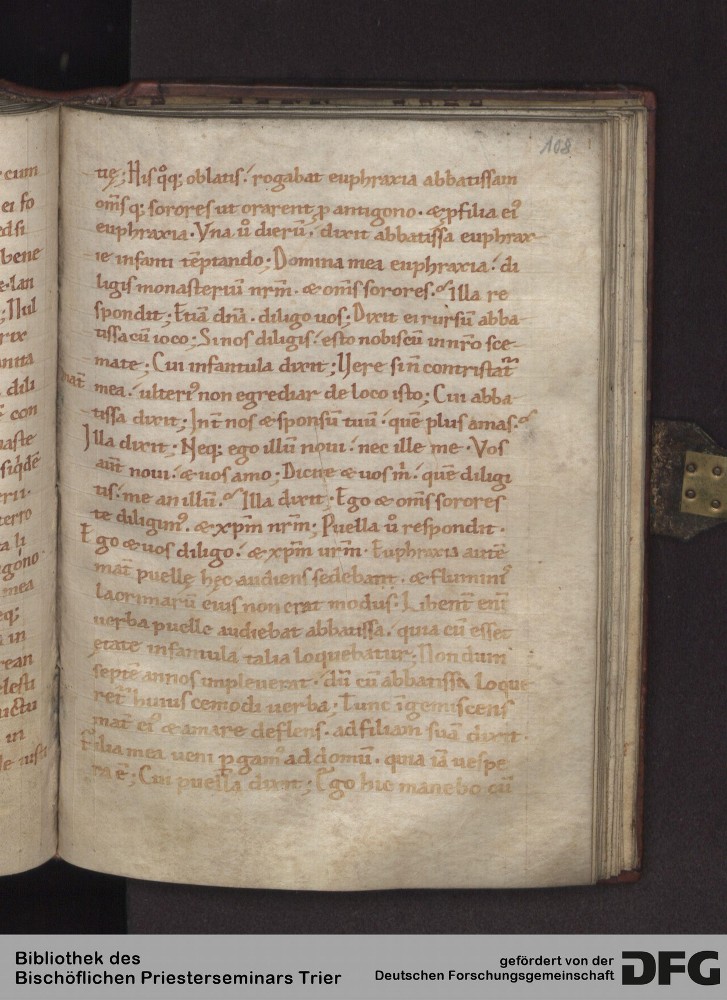 168
tię; His q̊q; oblatis ⸵ rogabat euphraxia abbatissam
om̄s q; sorores ut orarent p̱ antigono · & p̱ filia ei᾿
euphraxia · Vna u̅ dierū ⸵ dixit abbatissa euphrax
ie infanti tēptando; Domina mea euphraxia ⸵ di
ligis monasteriū nr̄m · & om̄s sorores? Illa re
spondit; Etiā dn̄a · diligo uos; Dixit ei rursū abba
tissa cū ioco; Si nos diligis ⸵ esto nobiscū in nr̄o sce
mate; Cui infantula dixit; Vere si n̄ contristat᾿
mat̄ mea ⸵ ulteri᾿ non egrediar de loco isto; Cui abba
tissa dixit; Int̄ nos & sponsū tuū · quē plus amas?
Illa dixit · Neq; ego illū noui · nec ille me · Vos
aūt noui ⸵ & uos amo; Dicite & uos m̊ ⸵ quē diligi
tis ⸵ me an illū? Illa dixit; Ego & om̄s sorores
te diligim᾿ · & xp̄m nr̄m; Puella u̅ respondit ·
Ego & uos diligo ⸵ & xp̄m ur̄m · Euphraxia autē
mat̄ puellę hęc audiens sedebant · & flumini᾿
lacrimarū eius non erat modus · Libent̄ eni̅
uerba puelle audiebat abbatissa · quia cū esset
ętate infantula talia loquebatur; Nondum
septē annos impleuerat · dū cū abbatissa loque
ret᾿ huius cemodi uerba; Tunc īgemiscens
mat̄ ei᾿ & amare deflens · ad filiam suā dixit ·
Filia mea ueni p̱gam᾿ ad domū · quia iā uespe
ra ē; Cui puella dixit; Ego hic manebo cū
Bibliothek des
Bischöflichen Priesterseminars Trier
gefördert von der
Deutschen Forschungsgemeinschaft
DFG